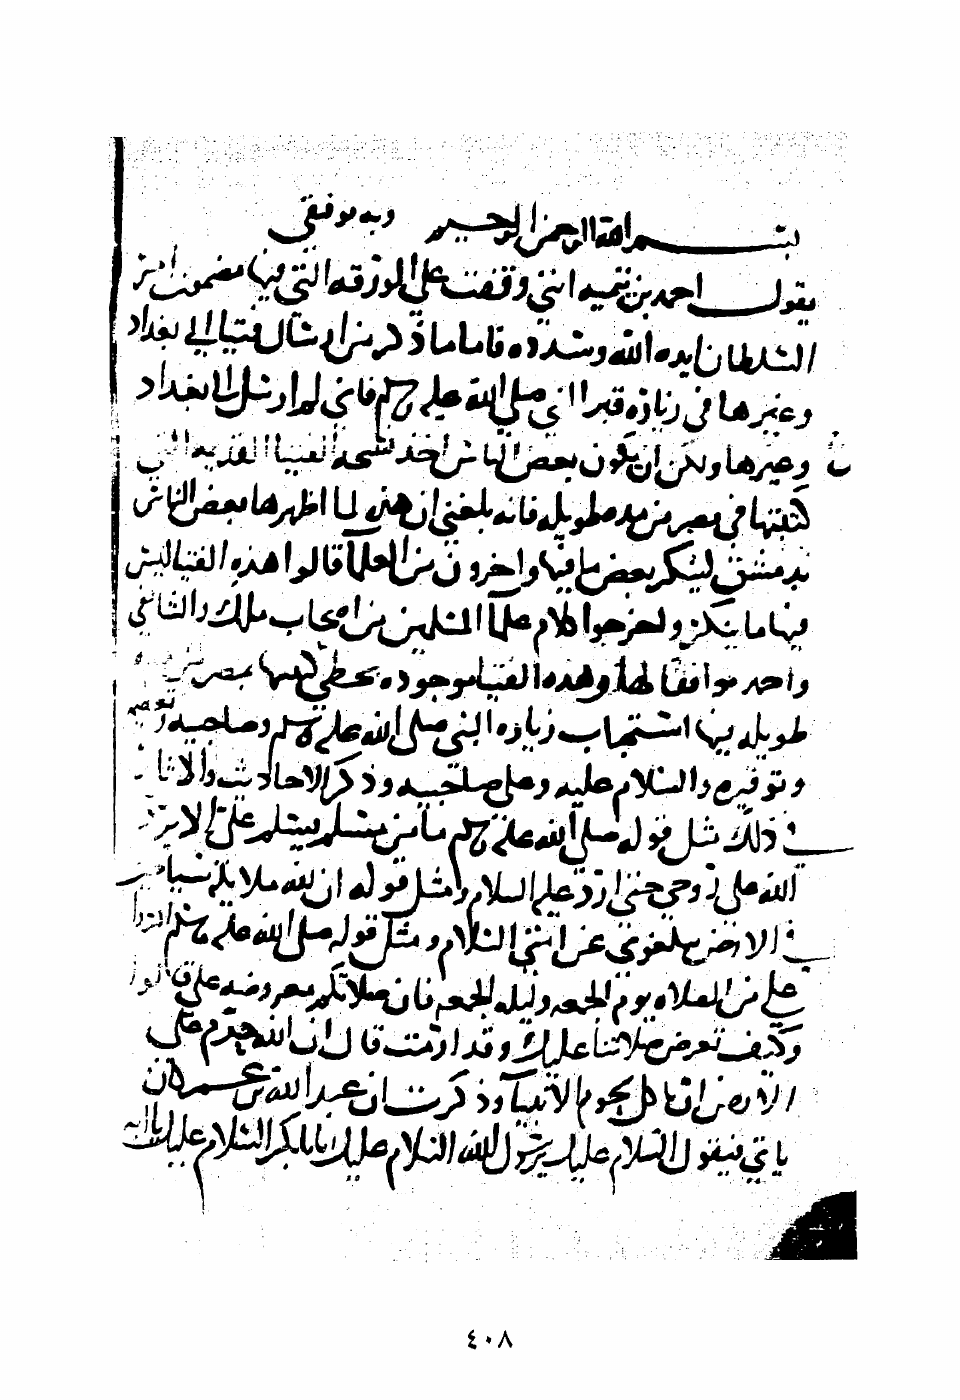 بسم الله الرحمن الرحيم وبه توفيقي
يقول احمد بن تيميه انني وقفت على الورقه التي فيها مضمون امر
السلطان ايده الله وسدده فاما ما ذكر من ارسال فتيا الى بغداد
وغيرها في زيارة قبر النبي صلى الله عليه وسلم فاني لم ارسل الى بغداد
وغيرها ولكن ان يكون بعض الناس اخذ نسخه الفتيا القديمه التي
كتبتها في مصر من مده طويله فانه بلغني ان هذه لما اظهرها بعض الناس
بدمشق لينكر بعض ما فيها واخرون من العلما قالوا هذه الفتيا ليس
فيها ما ينكر ولخرجوا كلام علما المسلمين من اصحاب ملك والشافعي
واحمد موافقا لها وهذه الفتيا موجوده بخطي كتبتها بمصر
طويله فيها استحباب زيارة النبي صلى الله عليه وسلم وصاحبيه
وتوقيره والسلام عليه وعلى صاحبيه وذكر الاحاديث والاثار
في ذلك مثل قوله صلى الله عليه وسلم ما من مسلم يسلم علي الا رد
الله علي روحي حتى ارد عليه السلام ومثل قوله ان لله ملايكة سياحين
في الارض يبلغوني عن امتي السلام ومثل قوله صلى الله عليه وسلم اكثروا
علي من الصلاه يوم الجمعه وليله الجمعه فان صلاتكم معروضه علي قالوا
وكيف تعرض صلاتنا عليك وقد ارمت قال ان الله حرم على
الارض ان تاكل لحوم الانبيآ وذكرت ان عبد الله بن عمر كان
ياتي فيقول السلام عليك يرسول الله السلام عليك يابابكر السلام عليك يا ابه
٤٠٨